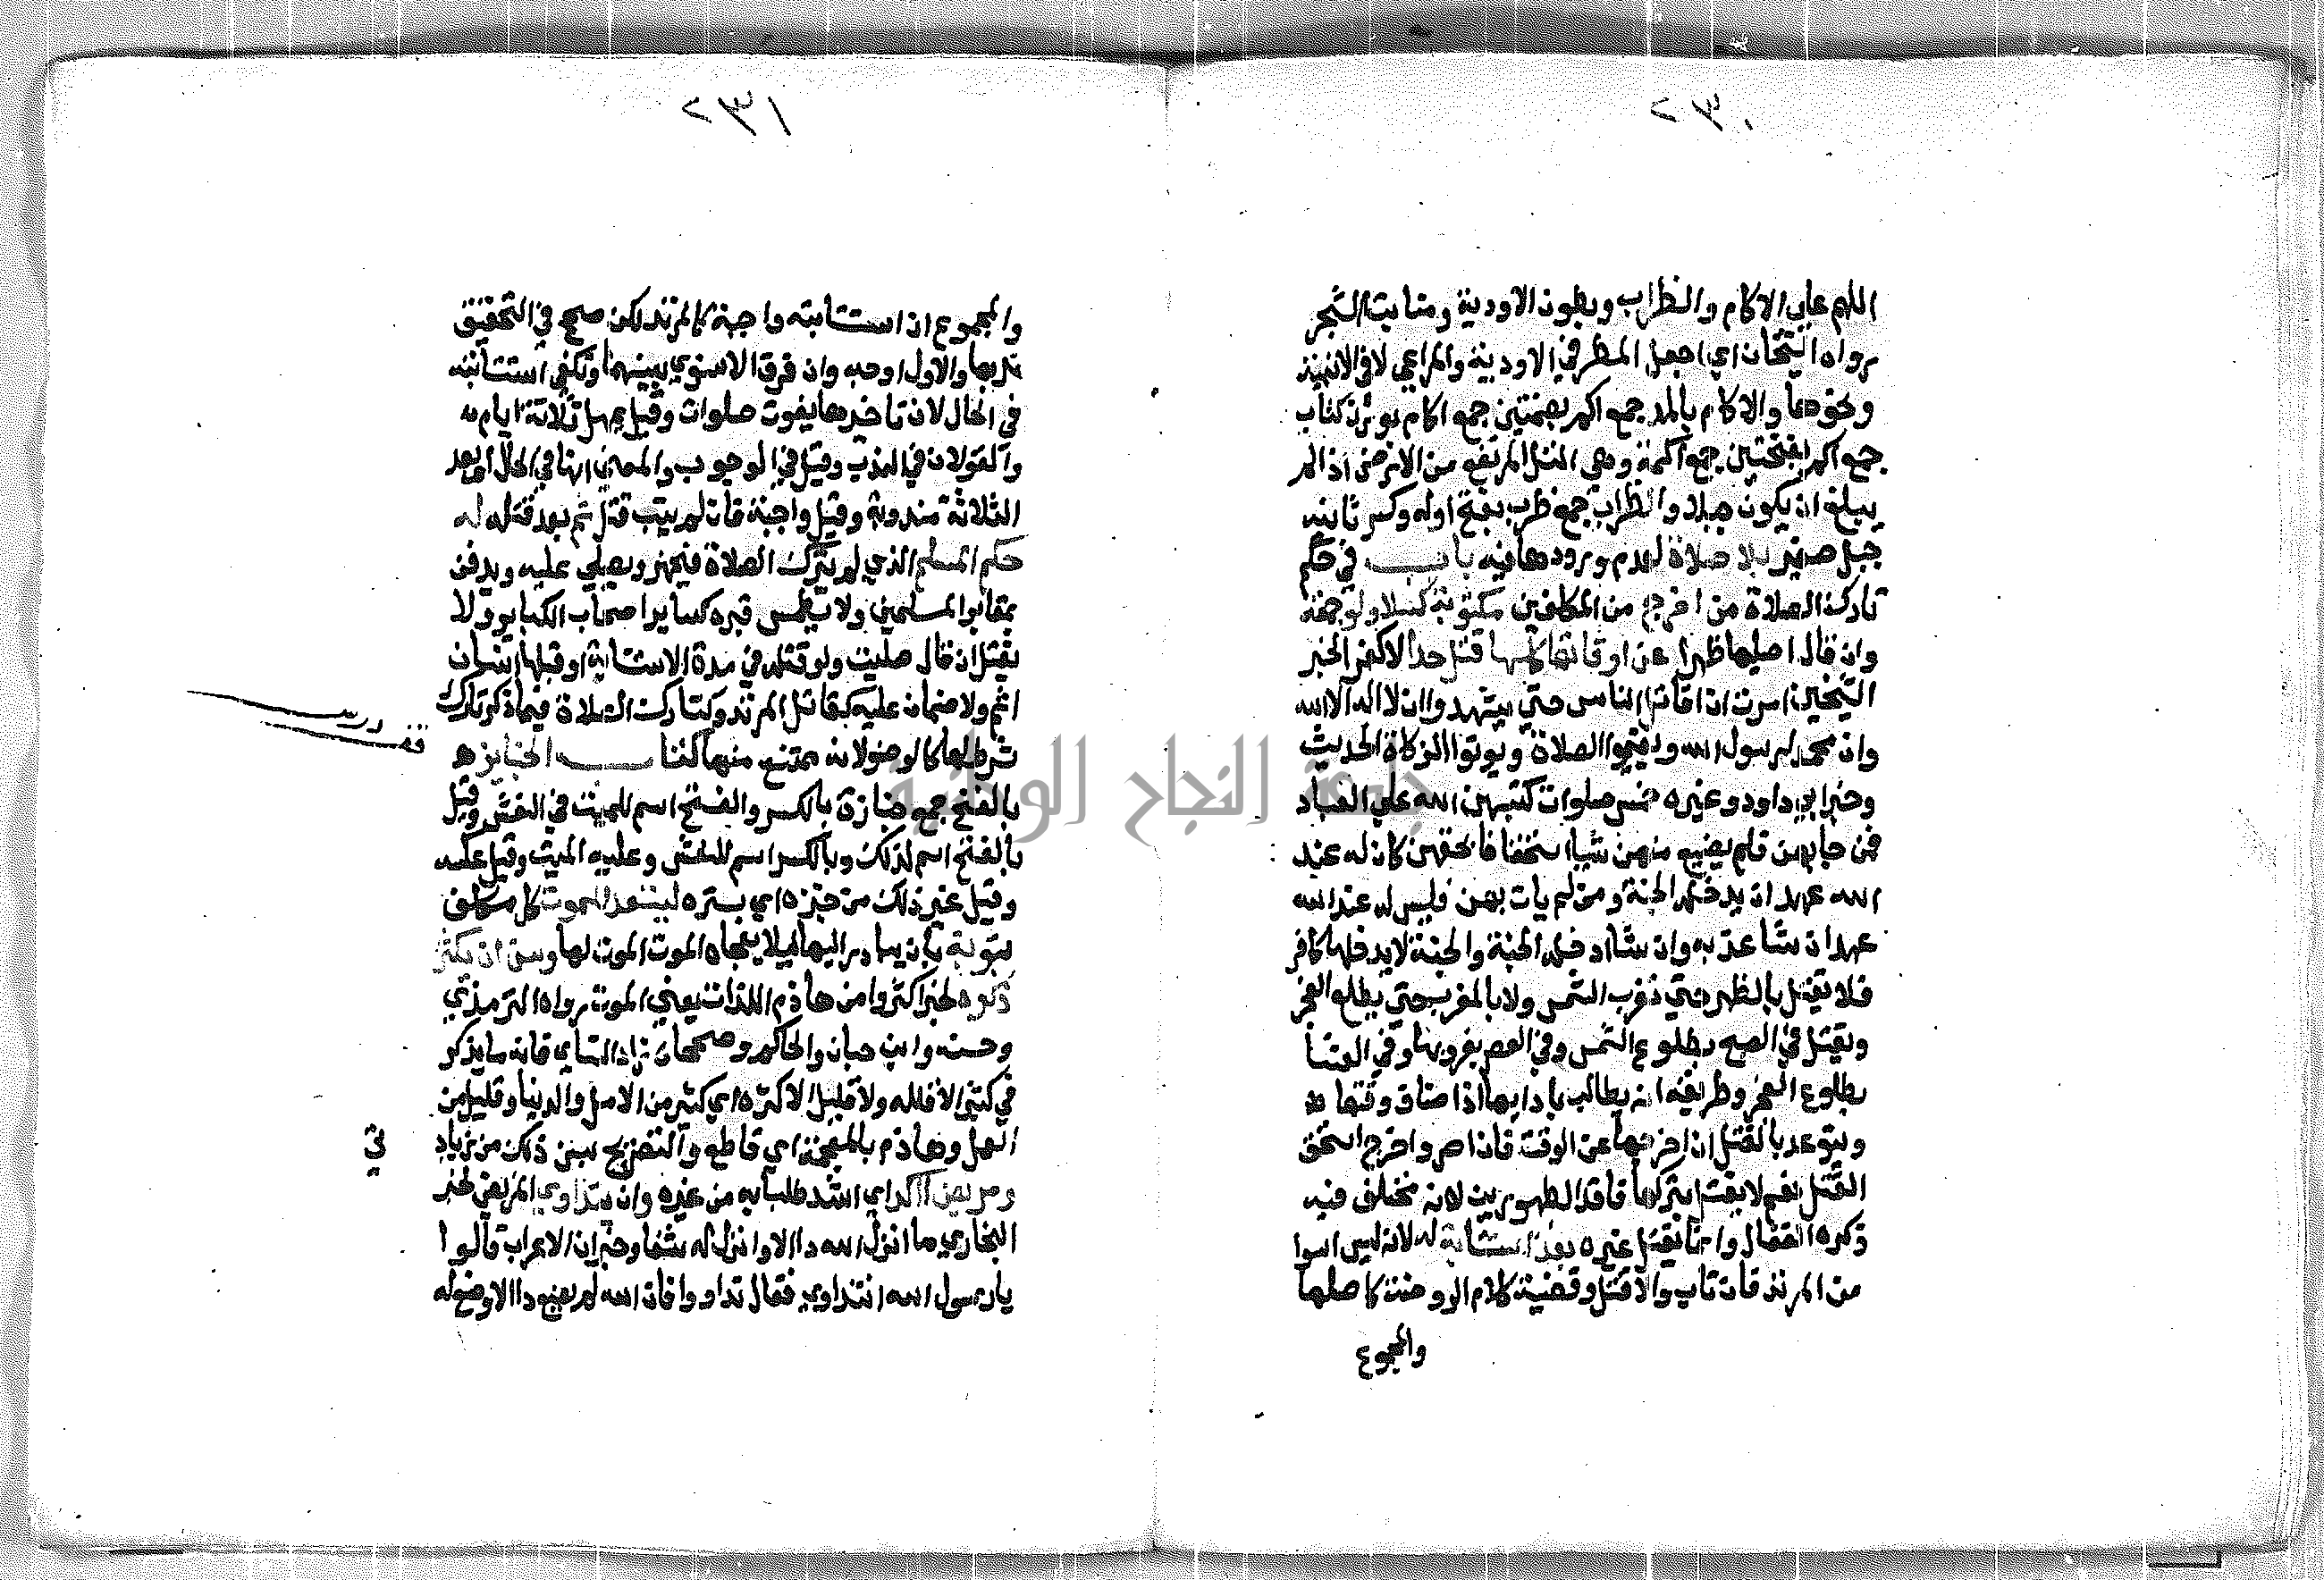 ٢٣٠
اللهم علي الاكام والظراب وبطون الاودية ومنابت الشجر
رواه الشيخان اي اجعل المطر في الاودية والمراعي لا في الابنية
ونحوها والاكام بالمد جمع اكم بضمتين جمع اكام بوزن كتاب
جمع اكم بفتحتين جمع اكمة وهي التل المرتفع من الارض اذا لم
يبلغ ان يكون جبلا والظراب جمع ظرب بفتح اوله وكسر ثانيه
جبل صغير بلا صلاة لعدم ورودها فيه باب في حكم
تارك الصلاة من اخرج من المكلفين مكتوبة كسلا ولو جمعة
وان قال اصليها ظهرا عن اوقاتها كلها قتل حدا لا كفرا لخبر
الشيخين امرت ان اقاتل الناس حتي يشهدوا ان لا اله الا الله
وان محمدا رسول الله ويقيموا الصلاة ويوتوا الزكاة الحديث
وخبر ابي داود وغيره خمس صلوات كتبهن الله علي العباد
فمن جا بهن فلم يضيع منهن شيا استخفافا بحقهن كان له عند
الله عهد ان يدخله الجنة ومن لم يات بهن فليس له عند الله
عهد ان شا عذبه وان شا ادخله الجنة والجنة لا يدخلها كافر
فلا يقتل بالظهر حتي تغرب الشمس ولا بالمغرب حتي يطلع الفجر
ويقتل في الصبح بطلوع الشمس وفي العصر بغروبها وفي العشا
بطلوع الفجر وطريقه انه يطالب بادايها اذا ضاق وقتها
ويتوعد بالقتل ان اخرجها عن الوقت فان اصر واخرج استحق
القتل نعم لا يقتل بتركها فاقد الطهورين لانه مختلف فيه
ذكره القفال وانما يقتل غيره بعد استتابة له لانه ليس اسوا
من المرتد فان تاب والا قتل وقضية كلام الروضة كاصلها
والمجموع
٢٣١
والمجموع ان استتابته واجبة كالمرتد لكن صحح في التحقيق
ندبها والاول اوجه وان فرق الاسنوي بينهما وتكفي استتابته
في الحال لان تاخيرها يفوت صلوات وقيل يمهل ثلاثة ايام
والقولان في الندب وقيل في الوجوب والمعني انها في الحال او بعد
الثلاثة مندوبة وقيل واجبة فان لم يتب قتل ثم بعد قتله له
حكم المسلم الذي لم يترك الصلاة فيجهز ويصلي عليه ويدفن
بمقابر المسلمين ولا يطمس قبره كساير اصحاب الكباير ولا
يقتل ان قال صليت ولو قتله في مدة الاستتابة او قبلها انسان
اثم ولا ضمان عليه كقاتل المرتد وكتارك الصلاة فيما ذكر تارك
شرطها كالوضو لانه ممتنع منها كتاب الجنايز
بالفتح جمع جنازة بالكسر والفتح اسم للميت في النعش وقيل
بالفتح اسم لذلك وبالكسر اسم للنعش وعليه الميت وقيل عكسه
وقيل غير ذلك من جنزه اي يستره ليستعد للموت كل مكلف
بتوبة بان يبادر اليها ليلا يفجاه الموت المفوت لها وسن ان يكثر
ذكره لخبر اكثروا من هاذم اللذات يعني الموت رواه الترمذي
وحسنه وابن حبان والحاكم وصححاه زاد النساي فانه ما يذكر
في كثير الا قلله ولا قليل الا كثره اي كثير من الامل والدنيا وقليل من
العمل وهاذم بالمعجمة اي قاطع والتصريح بسن ذلك من زيادتي
ومريض اكد اي اشد طلبا به من غيره وان يتداوي المريض لخبر
البخاري ما انزل الله دا الا وانزل له شفا وخبر ان الاعراب قالوا
يا رسول الله انتداوي فقال تداووا فان الله لم يضع دا الا وضع له
جامعة النجاح الوطنية